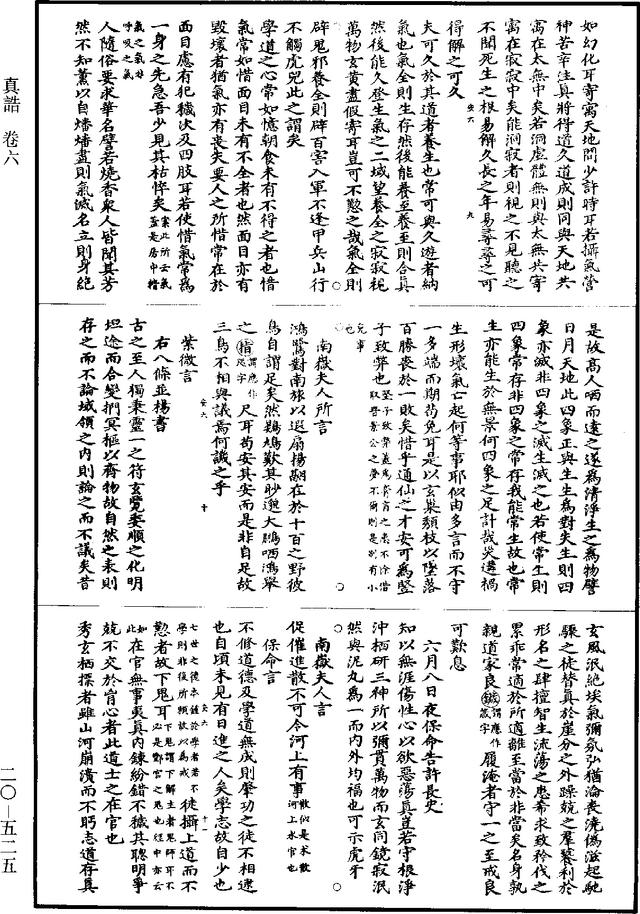 真誥　卷六
二〇—五二五
如幻化耳寄寓天地間少許時耳若攝氣營
神苦辛注真將得道久道成則同與天地共
寓在太無中矣若洞虛體無則與太無共寄
寓在寂寂中矣能洞寂者則視之不見聽之
不聞死生之根易解久長之年易尋尋之可
得解之可久
夫可久於其道者養生也常可與久遊者納
氣也氣全則生存然後能養至養至則合真
然後能久登生氣之二域望養全之寂寂視
萬物玄黃盡假寄耳豈可不懃之哉氣全則
辟鬼邪養全則辟百害入軍不逢甲兵山行
不觸虎兕此之謂矣
學道之心常如憶朝食未有不得之者也惜
氣常如惜面目未有不全者也然面目亦有
毀壞者猶氣亦有喪失要人之所惜常在於
面目慮有犯穢決及四肢耳若使惜氣常爲
一身之先急吾少見其枯悴矣案此所云氣蓋是房中精
氣之氣非呼吸之氣
人隨俗要求華名譬若燒香衆人皆聞其芳
然不知薰以自燔燔盡則氣滅名立則身絶
是故高人哂而遠之遂爲清淨生之爲物譬
日月天地此四象正與生生爲對失生則四
象亦滅非四象之滅生滅之也若使常生則
四象常存非四象之常存我能常生故也常
生亦能生於無景何四象之足計哉災遘禍
生形壞氣亡起何等事耶似由多言而不守
一多端而期苟免耳是以玄巢頹枝以墜落
百勝喪於一敗矣惜乎通仙之才安可爲竪
子致弊也
南嶽夫人所言
鴻鷺對南旅以遐扇揚翮在於十百之野彼
鳥自謂足矣然鷄鳩歎其眇邈大鵬哂鴻舉
之𢵧謂應作咫字尺耳苟安其安而是非自足故
三鳥不相與議焉何譏之乎
紫微言
右八條並楊書
古之至人獨秉靈一之符玄覽委順之化明
坦途而合變捫冥樞以齊物故自然之表則
存之而不論域領之内則論之而不議矣昔
玄風泯絶埃氣彌氛弘猶淪喪澆僞滋起馳
騁之徒替真於崖分之外躁競之羣騖利於
形名之肆擅智生流蕩之患希求致矜伐之
累乖常適於所適離至當於非當矣名身孰
親道家良鍼謂應作箴字履淹者守一之至戒良
可歎息
六月八日夜保命告許長史
知以無涯傷性心以欲惡蕩真豈若守根淨
沖栖研三神所以彌貫萬物而玄同鏡寂泯
然與泥丸爲一而内外均福也可示虎牙
南嶽夫人言
促催進散不可令河上有事散似是求散河上水官也
保命言
不修道德及學道無成則肇功之徒不相逮
也自頃未見有日進之人矣學志故自少也
徒攝上道而不
懃者故下鬼耳
在官無事夷真内鍊紛錯不穢其聰明爭
競不交於胷心者此道士之在官也
秀玄栖揲者雖山河崩潰而不眄志道存真